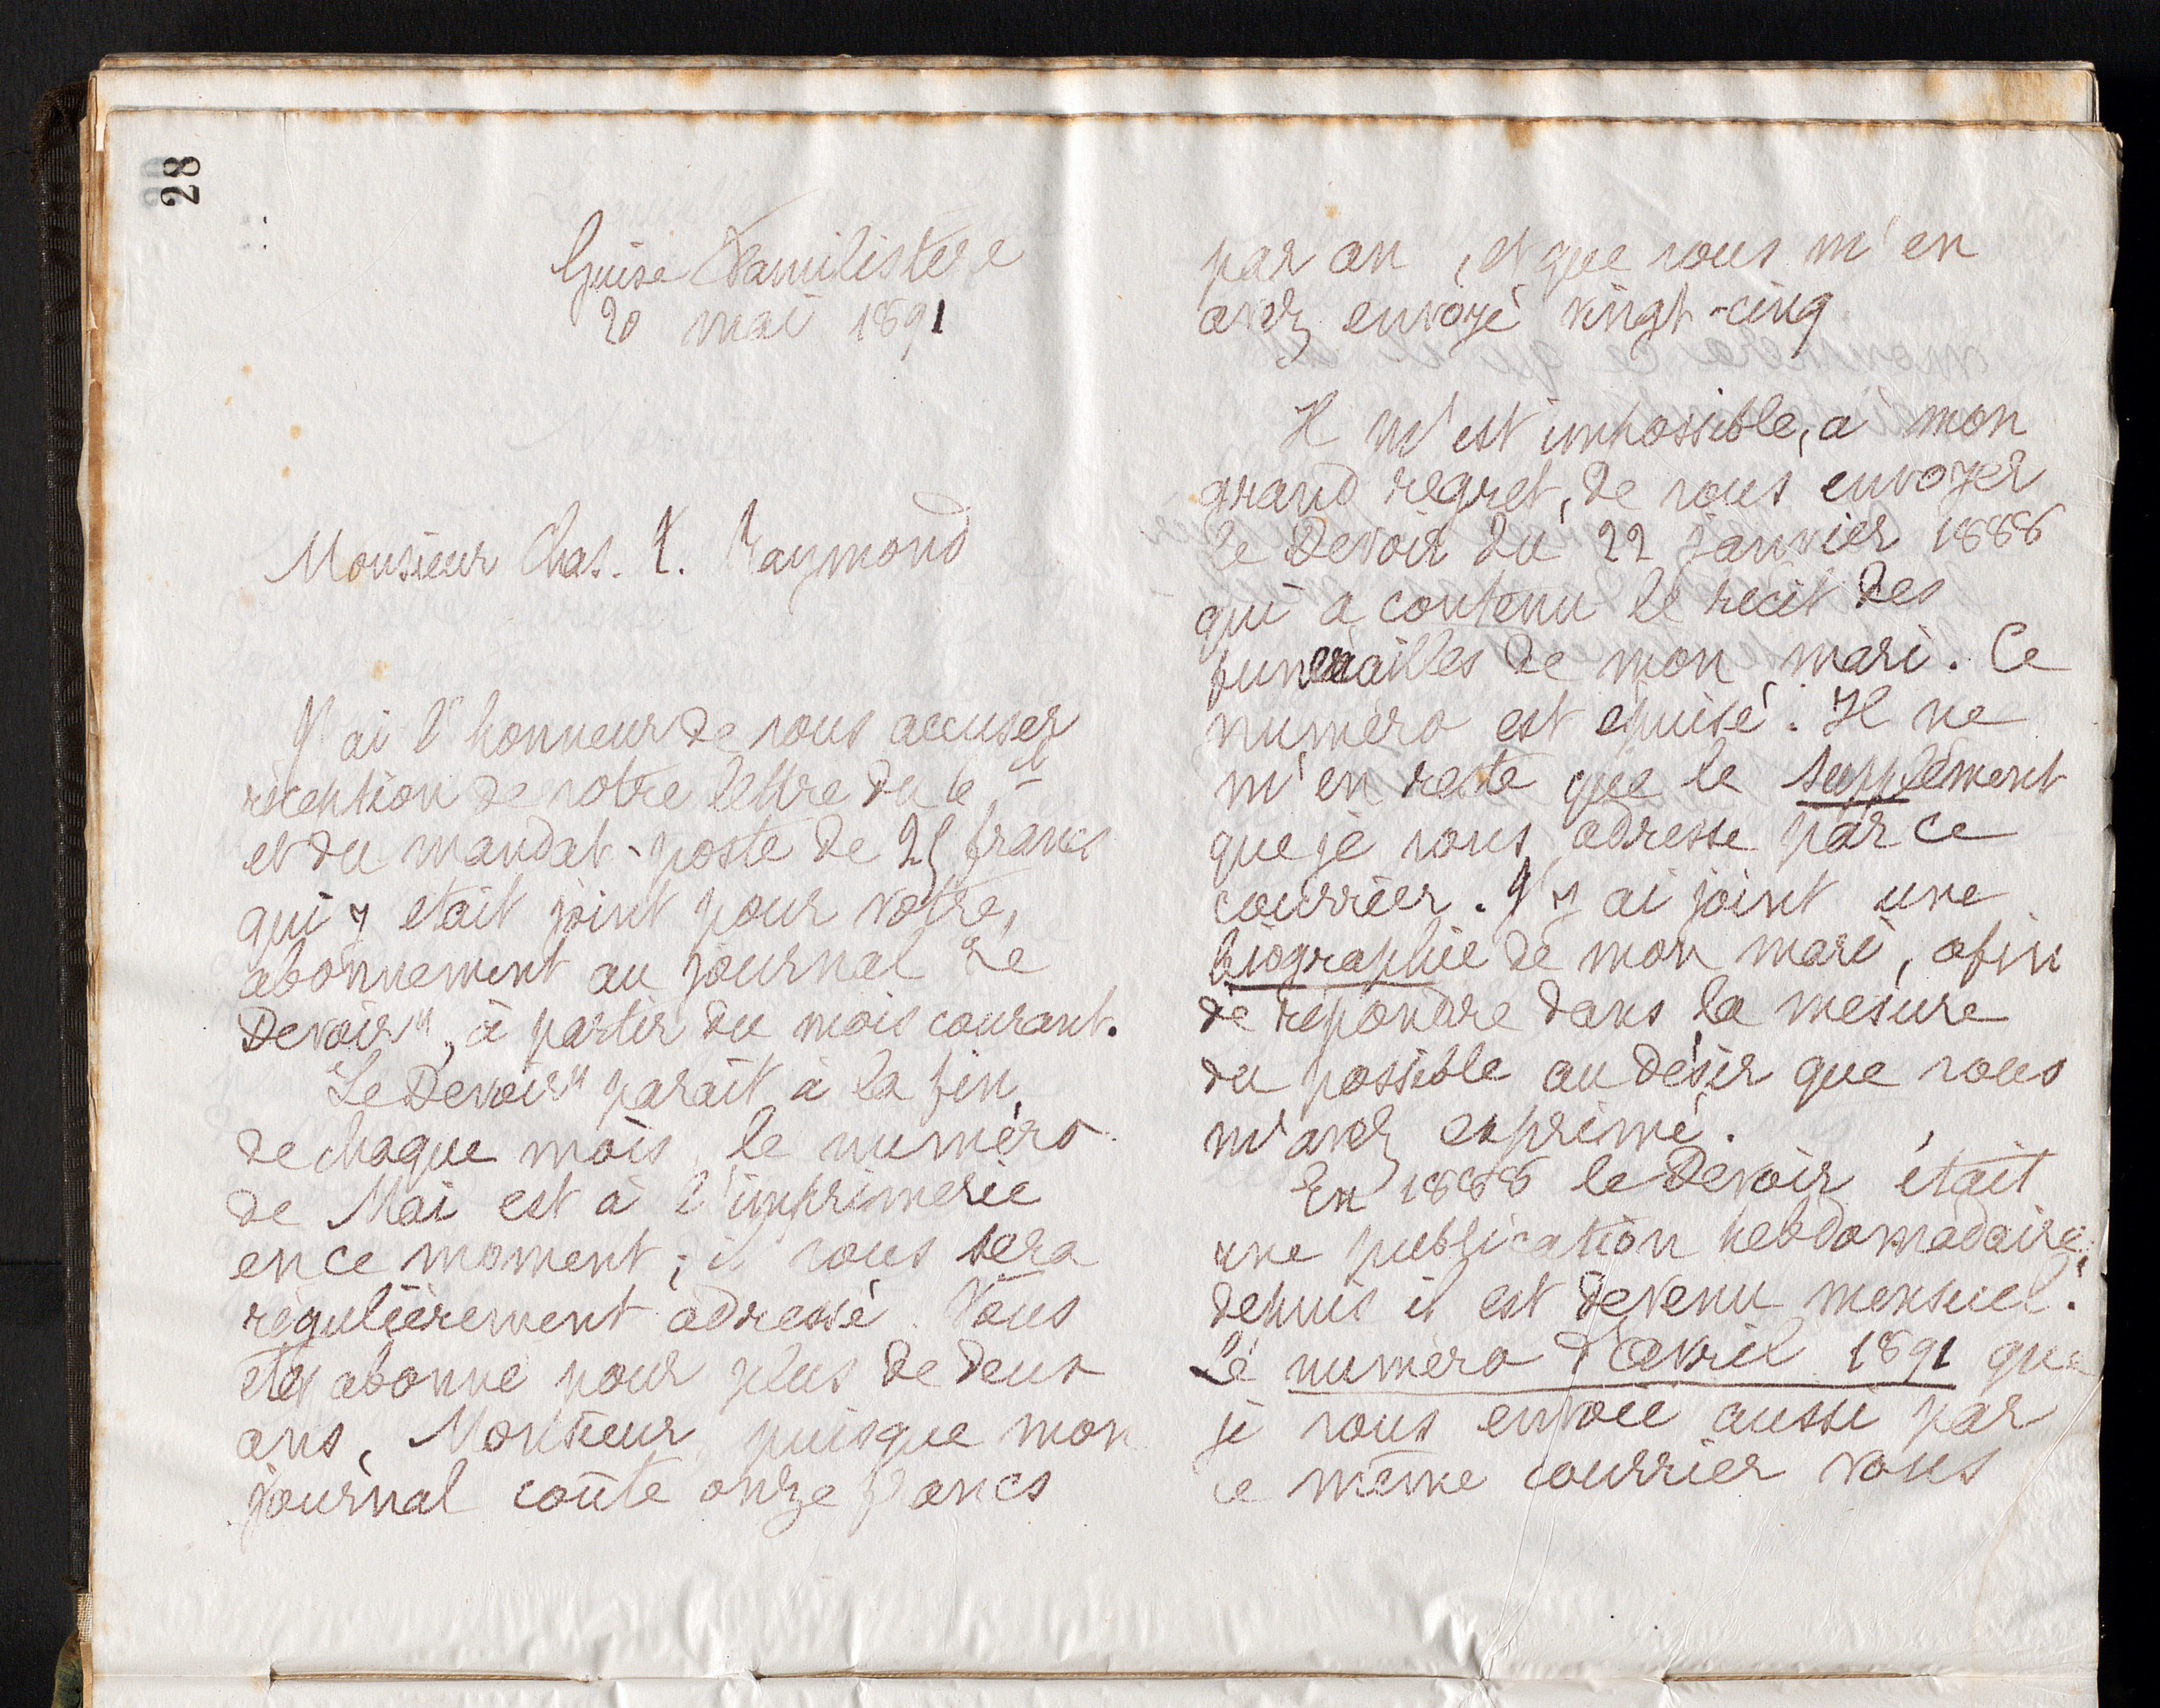 28
Guise Familistère
20 mai 1891
Monsieur Chas. Raymond
J'ai l'honneur de vous accuser
réception de votre lettre du 6 ct
et du mandat-poste de 25 francs
qui y était joint pour votre
abonnement au journal "Le
Devoir", à partir du mois courant.
"Le Devoir" paraît à la fin
de chaque mois, le numéro
de Mai est à l'imprimerie
en ce moment ; il vous sera
régulièrement adressé. Vous
êtes abonné pour plus de deux
ans, Monsieur, puisque mon
journal coûte onze francs
par an, et que vous m'en
avez envoyé vingt-cinq
Il m'est impossible, à mon
grand regret, de vous envoyer
le Devoir du 22 janvier 1888
qui a contenu le récit des
funérailles de mon mari. Ce
numéro est épuisé. Il ne
m'en reste que le supplément
que je vous adresse par ce
courrier. J'y ai joint une
biographie de mon mari, afin
de répondre dans la mesure
du possible au désir que vous
m'avez exprimé.
En 1888 le Devoir était
une publication hebdomadaire ;
depuis il est devenu mensuel.
Le numéro d'avril 1891 que
je vous envoie aussi par
ce même courrier vous